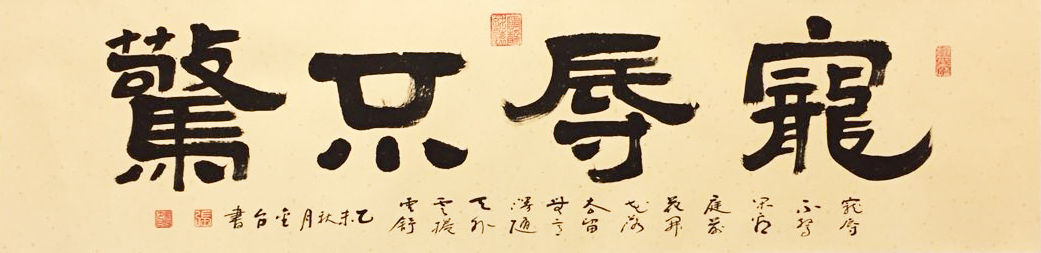 寵辱不驚
寵辱
不驚
閑看
庭前
花開
花落
去留
無意
漫隨
天外
雲捲
雲舒
乙未秋月金台書